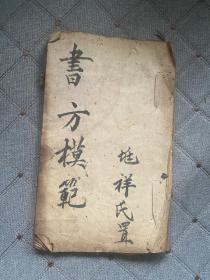 書方模範
祥氏置